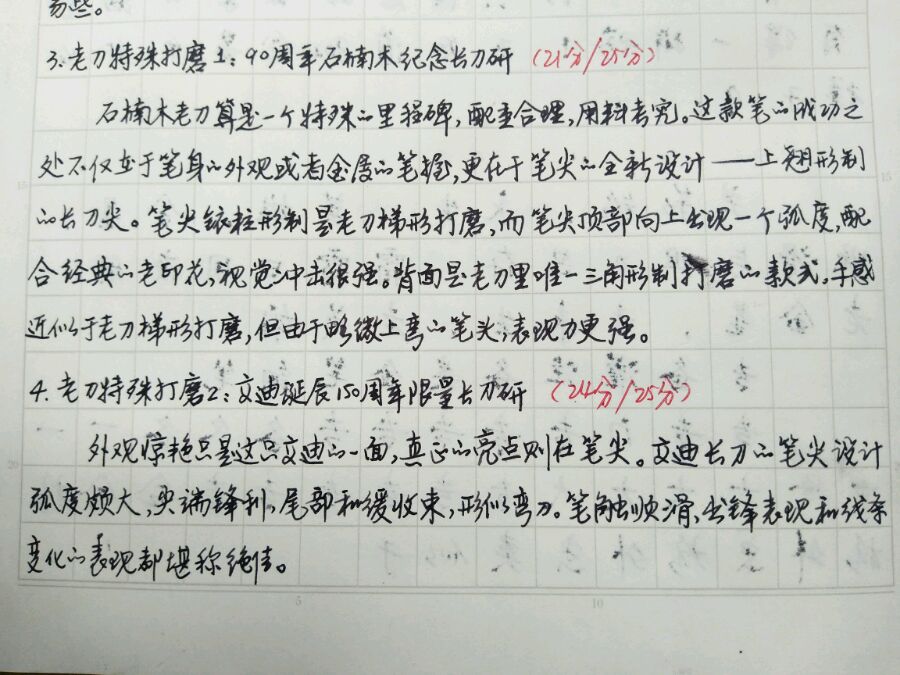 易些。
3. 老刀特殊打磨1：90周年石楠木纪念长刀研 (21分/25分)
石楠木老刀算是一个特殊的里程碑，配重合理，用料考究。这款笔的成功之
处不仅在于笔身的外观或者金属的笔握，更在于笔尖的全新设计——上翘形制
的长刀尖。笔尖铱粒形制是老刀梯形打磨，而笔尖顶部向上出现一个弧度，配
合经典的老印花，视觉冲击很强。背面是老刀里唯一三角形制打磨的款式，手感
近似于老刀梯形打磨，但由于略微上弯的笔头，表现力更强。
4. 老刀特殊打磨2：文迪诞辰150周年限量长刀研 (24分/25分)
外观惊艳只是这只文迪的一面，真正的亮点则在笔尖。文迪长刀的笔尖设计
弧度颇大，尖端锋利，尾部和缓收束，形似弯刀。笔触顺滑，出锋表现和线条
变化的表现都堪称绝佳。
15
15
20
20
5
10